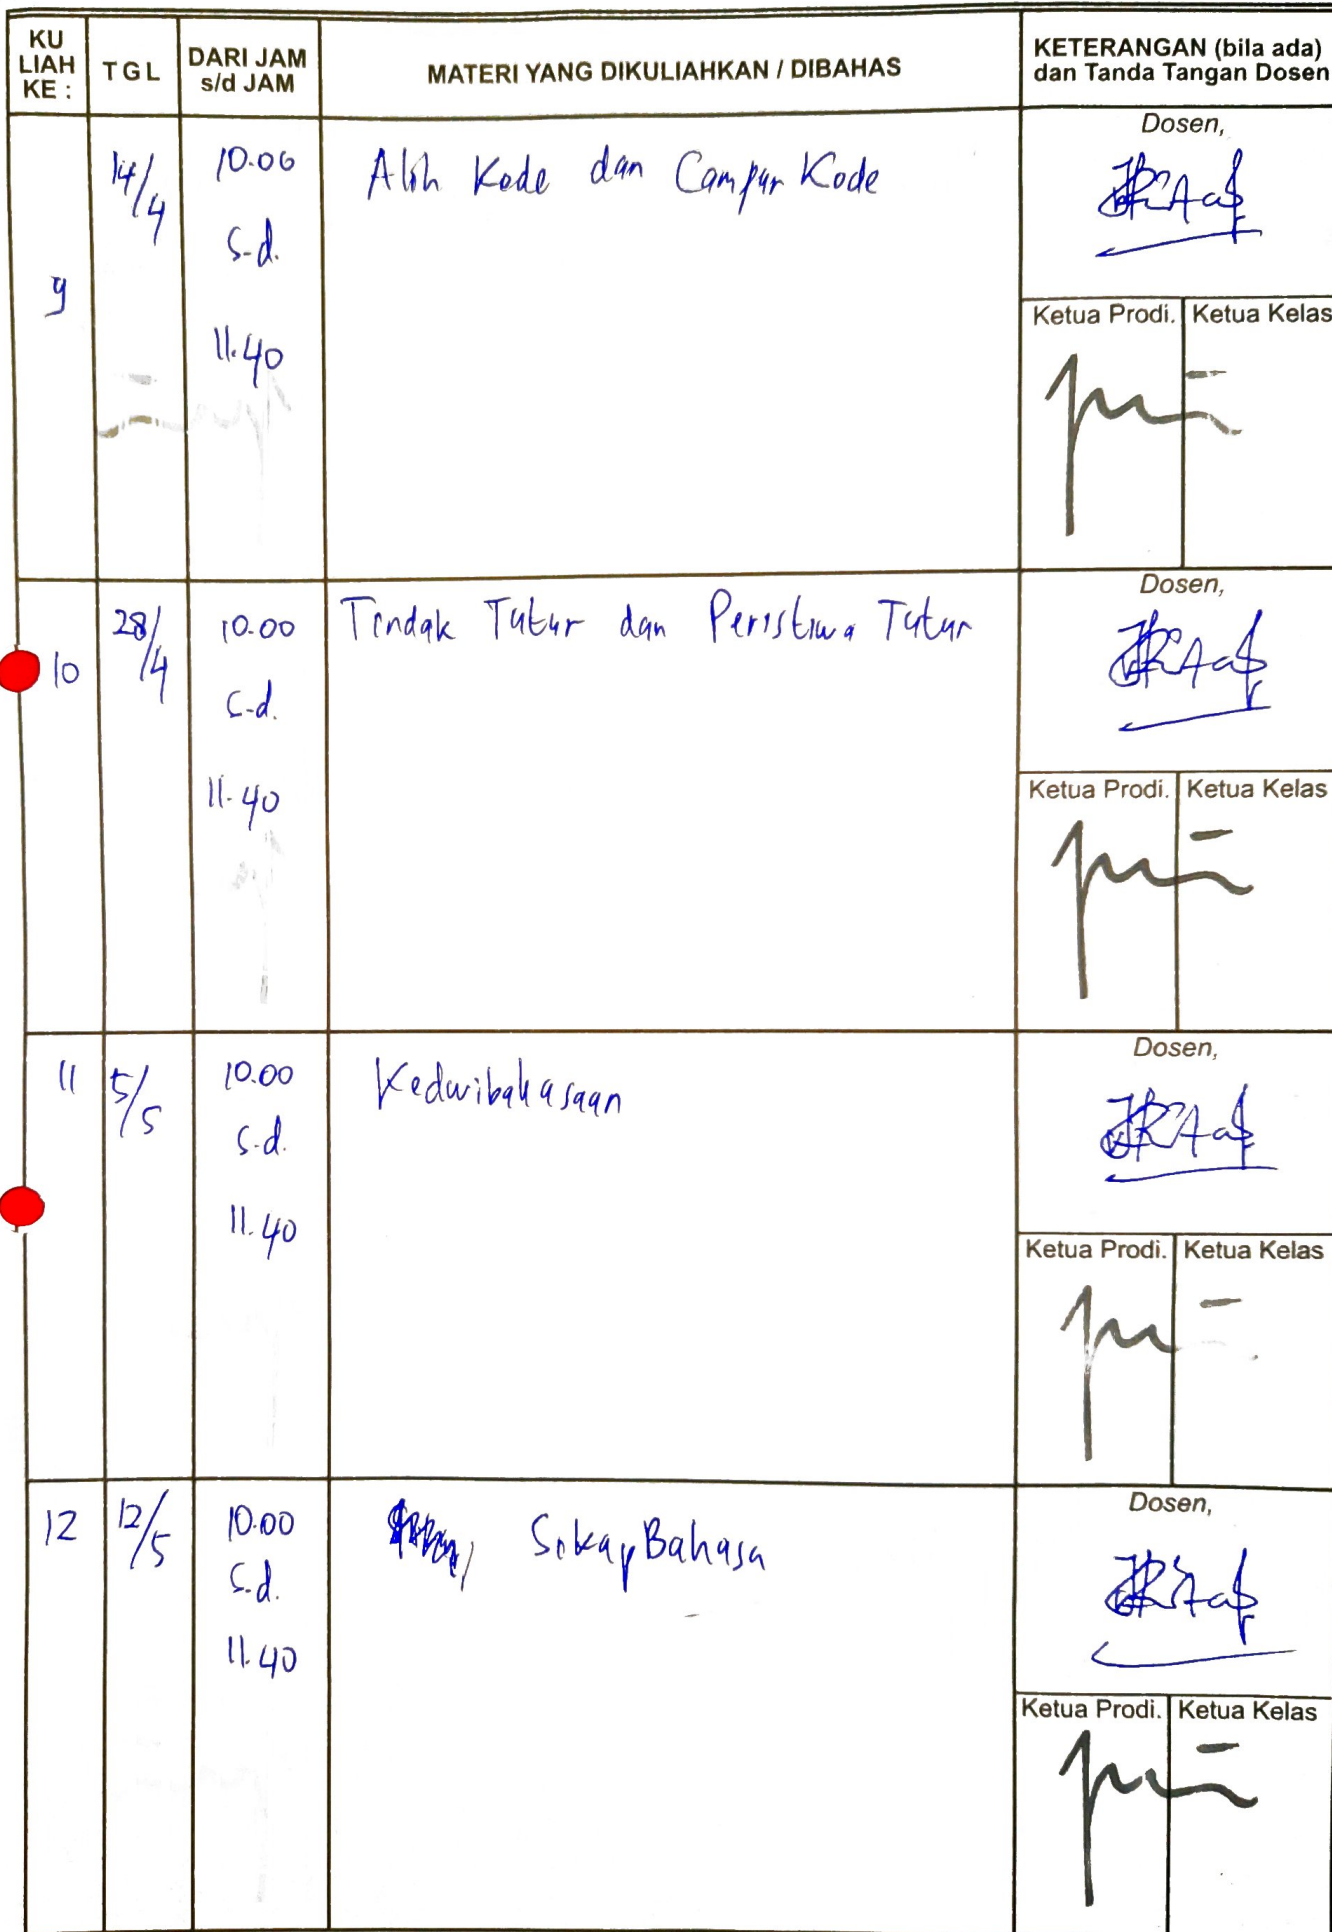 KU LIAH KE :
TGL
DARI JAM s/d JAM
MATERI YANG DIKULIAHKAN / DIBAHAS
KETERANGAN (bila ada) dan Tanda Tangan Dosen
9
14/4
10.00
s.d.
11.40
Alih Kode dan Campur Kode
Dosen,
Ketua Prodi.
Ketua Kelas
10
28/4
10.00
s.d.
11.40
Tindak Tutur dan Peristiwa Tutur
Dosen,
Ketua Prodi.
Ketua Kelas
11
5/5
10.00
s.d.
11.40
Kedwibahasaan
Dosen,
Ketua Prodi.
Ketua Kelas
12
12/5
10.00
s.d.
11.40
Sikap Bahasa
Dosen,
Ketua Prodi.
Ketua Kelas